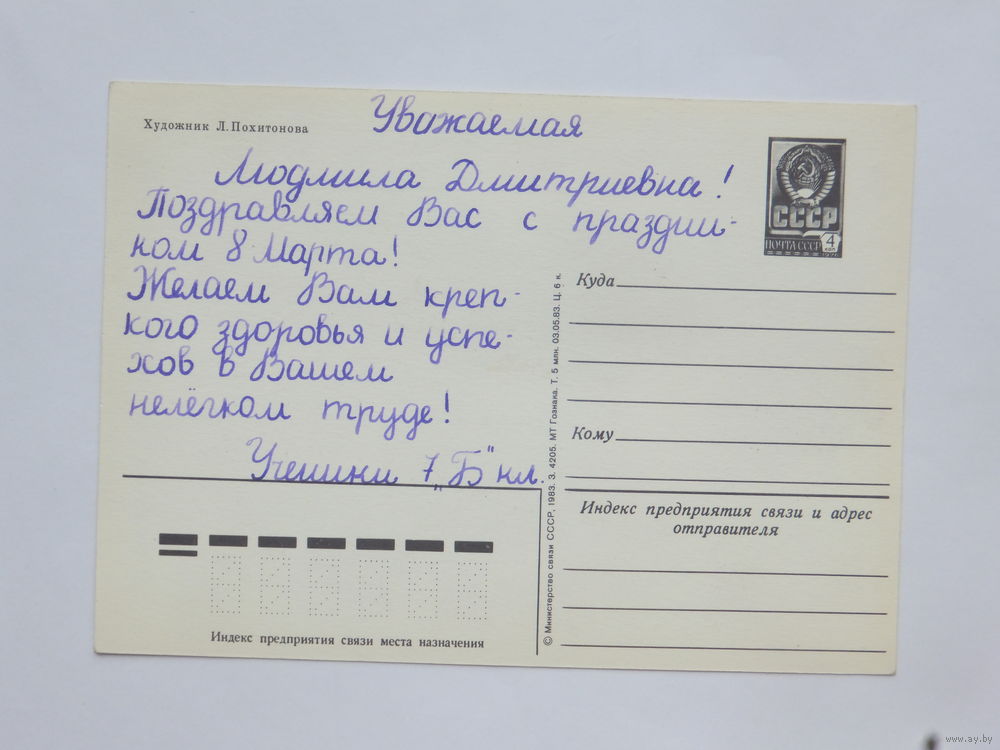 Художник Л. Похитонова
Уважаемая
Людмила Дмитриевна!
Поздравляем Вас с праздни-
ком 8 Марта!
Желаем Вам креп-
кого здоровья и успе-
хов в Вашем
нелёгком труде!
Ученики 7 „Б" кл.
СССР
ПОЧТА СССР
4
коп
1976
Куда
Кому
Индекс предприятия связи и адрес
отправителя
© Министерство связи СССР, 1983. З. 4205. МТ Гознака. Т. 5 млн. 03.05.83. Ц. 6 к.
Индекс предприятия связи места назначения
www.ay.by